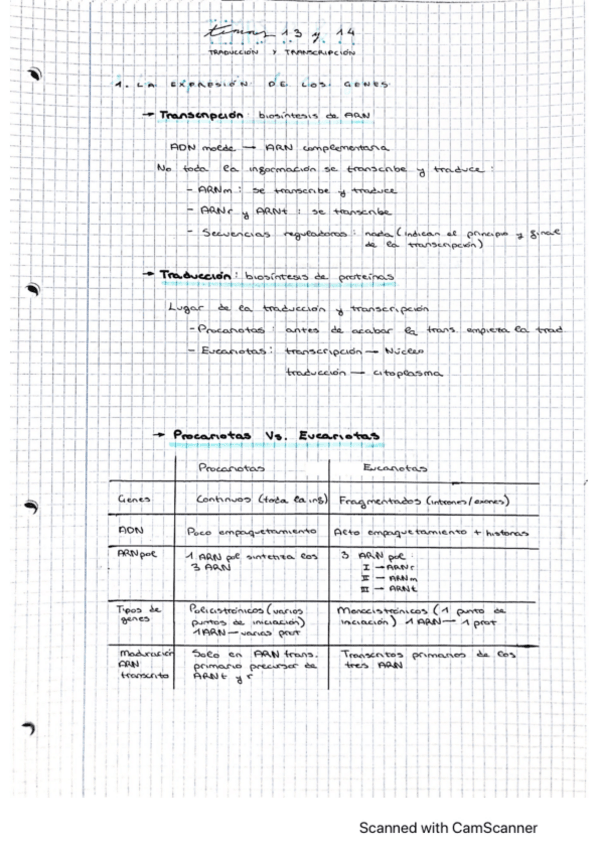 temas 13 y 14
TRADUCCIÓN Y TRANSCRIPCIÓN
1. LA EXPRESIÓN DE LOS GENES
→ Transcripción: biosíntesis de ARN
ADN molde → ARN complementaria
No toda la información se transcribe y traduce:
- ARNm: se transcribe y traduce
- ARNr y ARNt: se transcribe
- Secuencias reguladoras: nada (indican el principio y final
de la transcripción)
→ Traducción: biosíntesis de proteínas
Lugar de la traducción y transcripción
- Procariotas: antes de acabar la trans. empieza la trad.
- Eucariotas: transcripción — Núcleo
traducción — citoplasma
→ Procariotas Vs. Eucariotas
Procariotas Eucariotas
Genes Continuos (toda la inf) Fragmentados (intrones/exones)
ADN Poco empaquetamiento Alto empaquetamiento + histonas
ARNpol 1 ARN pol sintetiza los 3 ARN pol:
3 ARN I → ARNr
II → ARNm
III → ARNt
Tipos de Policistrónicos (varios Monocistrónicos (1 punto de
genes puntos de iniciación) iniciación) 1 ARN — 1 prot
1 ARN — varias prot
Maduración Solo en ARN trans. Transcritos primarios de los
ARN primario precursor de tres ARN
transcrito ARNt y r
Scanned with CamScanner